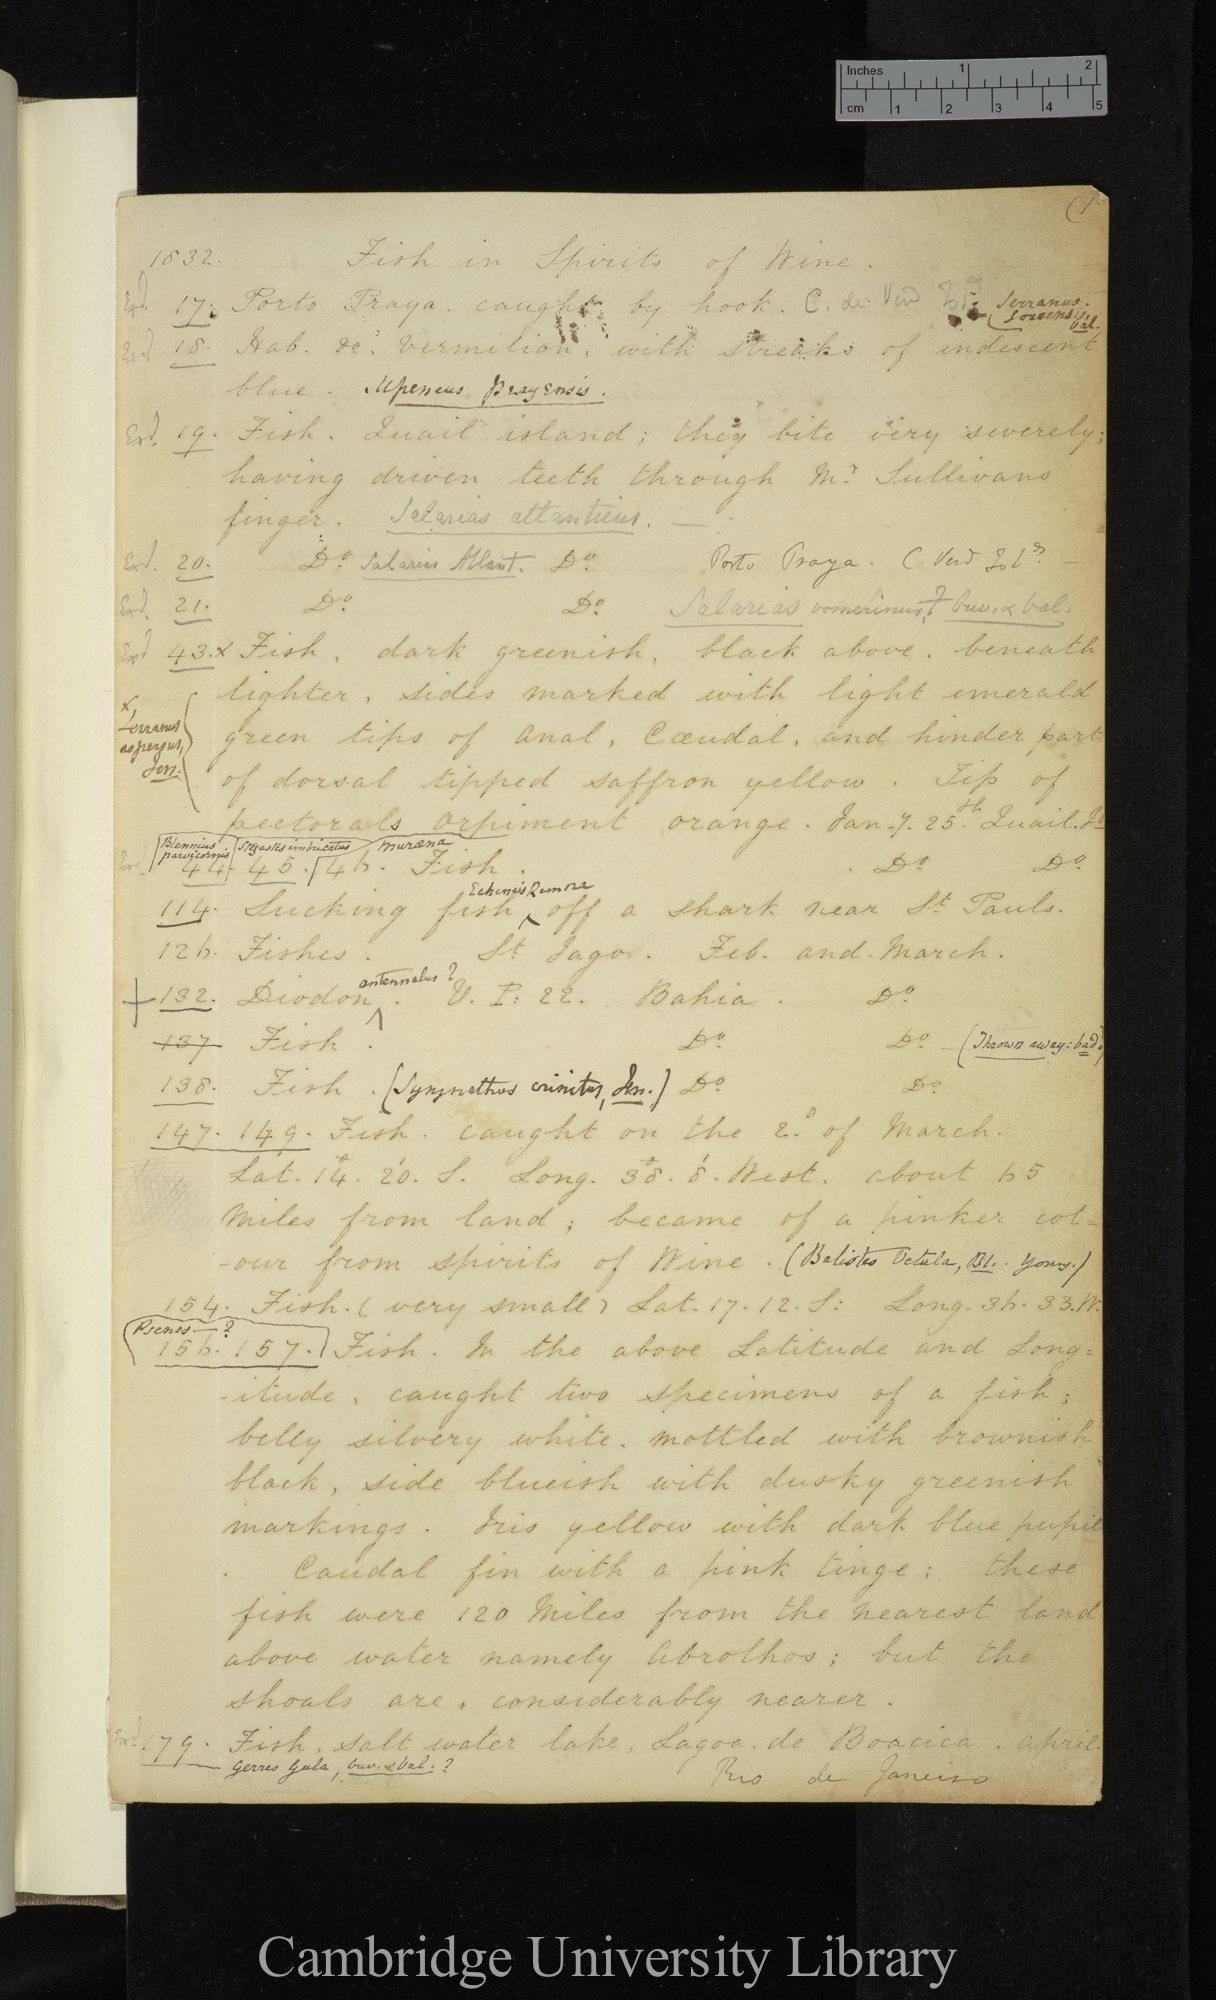 Inches 1 2
cm 1 2 3 4 5
(1
1832. Fish in Spirits of Wine.
Exd. 17. Porto Praya. caught by hook. C. de Verd Isds. (Serranus Goreensis. Val.
Exd. 18. Hab. do. Vermilion, with streaks of iridescent
blue. Upeneus Prayensis.
Exd. 19. Fish. Quail island; they bite very severely;
having driven teeth through Mr Sullivans
finger. Salarias atlanticus.
Exd. 20. Do Salarias Atlant. Do Porto Praya. C. Verd Isds
Exd. 21. Do Do Salarias vomerinus,? Cuv. & Val.
Exd 43.x Fish, dark greenish, black above, beneath
lighter, sides marked with light emerald
x Serranus aspersus, Jen.
green tips of anal, Cœudal, and hinder part
of dorsal tipped saffron yellow. Tip of
pectorals orpiment orange. Jan-y. 25th Quail. Id
Blennius parvicornis Stegastes imbricatus muræna
Exd. 44. 45. 46. Fish. Do Do
Echeneis Remora
114. Sucking fish ^ off a shark near St Pauls.
126. Fishes. St Jago. Feb. and March.
antennatus?
+ 132. Diodon ^. V. P: 22. Bahia. Do
137 Fish. Do Do (Thrown away: bad.)
138. Fish. (Syngnathus crinitus, Jen.) Do Do
147. 149. Fish. caught on the 2d of March.
Lat. 14°. 20'. S. Long. 38°. 8'. West. about 65
Miles from land; became of a pinker col=
-our from spirits of Wine. (Balistes Vetula, Bl. young.)
154. Fish. (very small) Lat. 17. 12. S: Long. 36. 33. W.
Psenes — ?
156. 157. Fish. In the above Latitude and Long=
-itude, caught two specimens of a fish;
belly silvery white. mottled with brownish
black, side blueish with dusky greenish
markings. Iris yellow with dark blue pupil
. Caudal fin with a pink tinge; these
fish were 120 Miles from the nearest land
above water namely Abrolhos; but the
shoals are, considerably nearer.
Exd. 179. Fish, salt water lake, Lagoa de Boacica. April.
Gerres Gula, Cuv. & Val.? Rio de Janeiro
Cambridge University Library